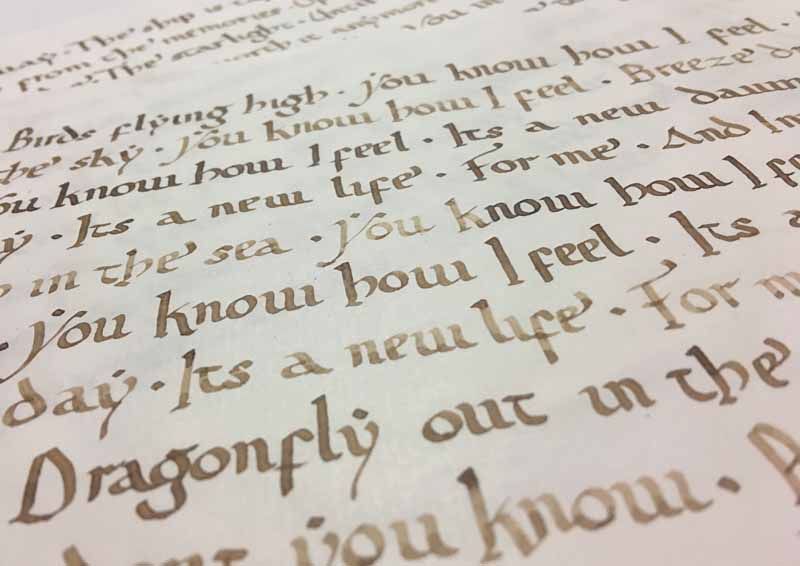 · The ship is
from the memories
· The starlight · Until
worth it anymore · You in
Birds flying high · you know how I feel ·
the sky · you know how I feel · Breeze
you know how I feel · Its a new dawn
· Its a new life · For me · And Im
in the sea · you know how I
· you know how I feel · Its a
day · Its a new life · For
Dragonfly out in the
you know ·